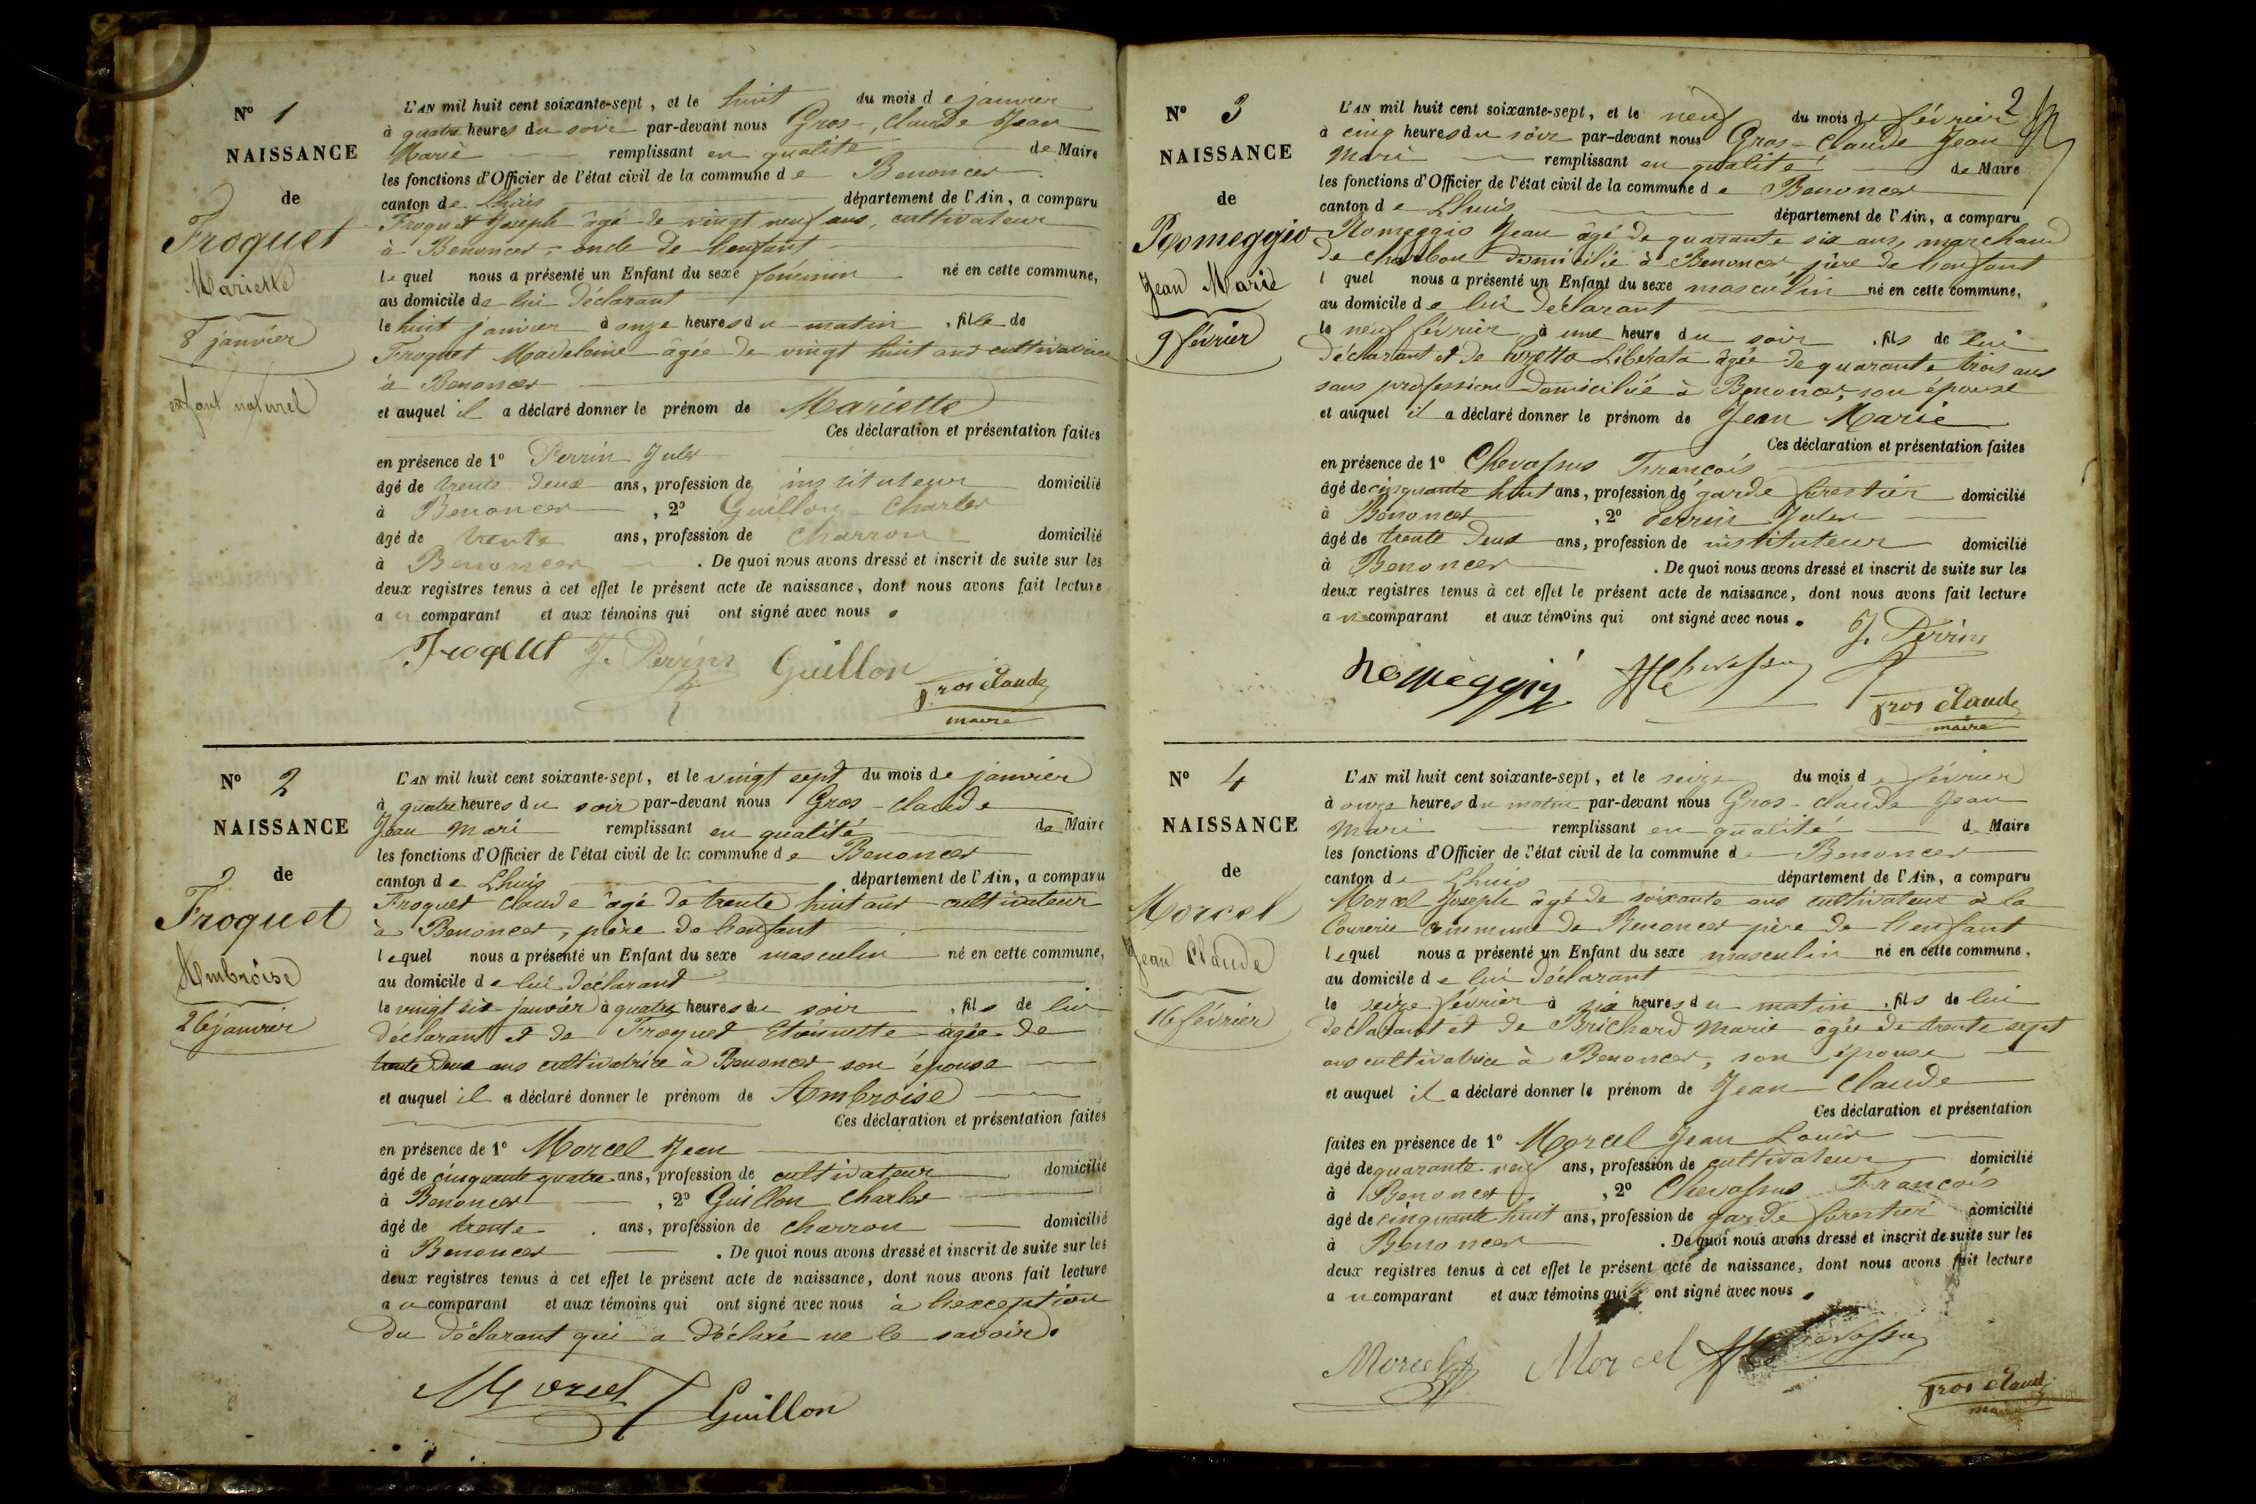 N° 1
NAISSANCE
de
Froquet
Mariette
8 janvier
enfant naturel
L'AN mil huit cent soixante-sept, et le huit du mois de janvier
à quatre heures du soir par-devant nous Gros-Claude Jean
Marie remplissant en qualité de Maire
les fonctions d'Officier de l'état civil de la commune de Benonces
canton de Lhuis département de l'Ain, a comparu
Froquet Joseph âgé de vingt neuf ans, cultivateur
à Benonces, oncle de l'enfant
lequel nous a présenté un Enfant du sexe féminin né en cette commune,
au domicile de lui déclarant
le huit janvier à onze heures du matin, fille de
Froquet Madelaine âgée de vingt huit ans cultivatrice
à Benonces
et auquel il a déclaré donner le prénom de Mariette
Ces déclaration et présentation faites
en présence de 1° Perrin Jules
âgé de trente deux ans, profession de instituteur domicilié
à Benonces, 2° Guillon Charles
âgé de trente ans, profession de charron domicilié
à Benonces. De quoi nous avons dressé et inscrit de suite sur les
deux registres tenus à cet effet le présent acte de naissance, dont nous avons fait lecture
au comparant et aux témoins qui ont signé avec nous.
Froquet J. Perrin Guillon
Gros Claude
maire
N° 2
NAISSANCE
de
Froquet
Ambroise
26 janvier
L'AN mil huit cent soixante-sept, et le vingt sept du mois de janvier
à quatre heures du soir par-devant nous Gros-Claude
Jean Mari remplissant en qualité de Maire
les fonctions d'Officier de l'état civil de la commune de Benonces
canton de Lhuis département de l'Ain, a comparu
Froquet Claude âgé de trente huit ans cultivateur
à Benonces, père de l'enfant
lequel nous a présenté un Enfant du sexe masculin né en cette commune,
au domicile de lui déclarant
le vingt six janvier à quatre heures du soir, fils de lui
déclarant et de Froquet Etiennette âgée de
trente deux ans cultivatrice à Benonces son épouse
et auquel il a déclaré donner le prénom de Ambroise
Ces déclaration et présentation faites
en présence de 1° Morcel Jean
âgé de cinquante quatre ans, profession de cultivateur domicilié
à Benonces, 2° Guillon Charles
âgé de trente ans, profession de charron domicilié
à Benonces. De quoi nous avons dressé et inscrit de suite sur les
deux registres tenus à cet effet le présent acte de naissance, dont nous avons fait lecture
au comparant et aux témoins qui ont signé avec nous à l'exception
du déclarant qui a déclaré ne le savoir.
Morcel Guillon
2
N° 3
NAISSANCE
de
Romeggio
Jean Marie
9 février
L'AN mil huit cent soixante-sept, et le neuf du mois de février
à cinq heures du soir par-devant nous Gros-Claude Jean
Mari remplissant en qualité de Maire
les fonctions d'Officier de l'état civil de la commune de Benonces
canton de Lhuis département de l'Ain, a comparu
Romeggio Jean âgé de quarante six ans, marchand
de charbon domicilié à Benonces père de l'enfant
l quel nous a présenté un Enfant du sexe masculin né en cette commune,
au domicile de lui déclarant
le neuf février à une heure du soir, fils de lui
déclarant et de Liberata âgée de quarante trois ans
sans profession domiciliée à Benonces, son épouse
et auquel il a déclaré donner le prénom de Jean Marie
Ces déclaration et présentation faites
en présence de 1° Chevassus François
âgé de cinquante huit ans, profession de garde forestier domicilié
à Benonces, 2° Perrin Jules
âgé de trente deux ans, profession de instituteur domicilié
à Benonces. De quoi nous avons dressé et inscrit de suite sur les
deux registres tenus à cet effet le présent acte de naissance, dont nous avons fait lecture
au comparant et aux témoins qui ont signé avec nous.
J. Perrin
Chevassus
Gros Claude
maire
N° 4
NAISSANCE
de
Morcel
Jean Claude
16 février
L'AN mil huit cent soixante-sept, et le seize du mois de février
à onze heures du matin par-devant nous Gros-Claude Jean
Mari remplissant en qualité d Maire
les fonctions d'Officier de l'état civil de la commune de Benonces
canton de Lhuis département de l'Ain, a comparu
Morcel Joseph âgé de soixante ans cultivateur à la
Courerie commune de Benonces père de l'enfant
lequel nous a présenté un Enfant du sexe masculin né en cette commune,
au domicile de lui déclarant
le seize février à six heures du matin, fils de lui
déclarant et de Brichard Marie âgée de trente sept
ans cultivatrice à Benonces, son épouse
et auquel il a déclaré donner le prénom de Jean Claude
Ces déclaration et présentation
faites en présence de 1° Morcel Jean Louis
âgé de quarante neuf ans, profession de cultivateur domicilié
à Benonces, 2° Chevassus François
âgé de cinquante huit ans, profession de garde forestier domicilié
à Benonces. De quoi nous avons dressé et inscrit de suite sur les
deux registres tenus à cet effet le présent acte de naissance, dont nous avons fait lecture
au comparant et aux témoins qui ont signé avec nous.
Morcel Morcel Chevassus
Gros Claude
maire